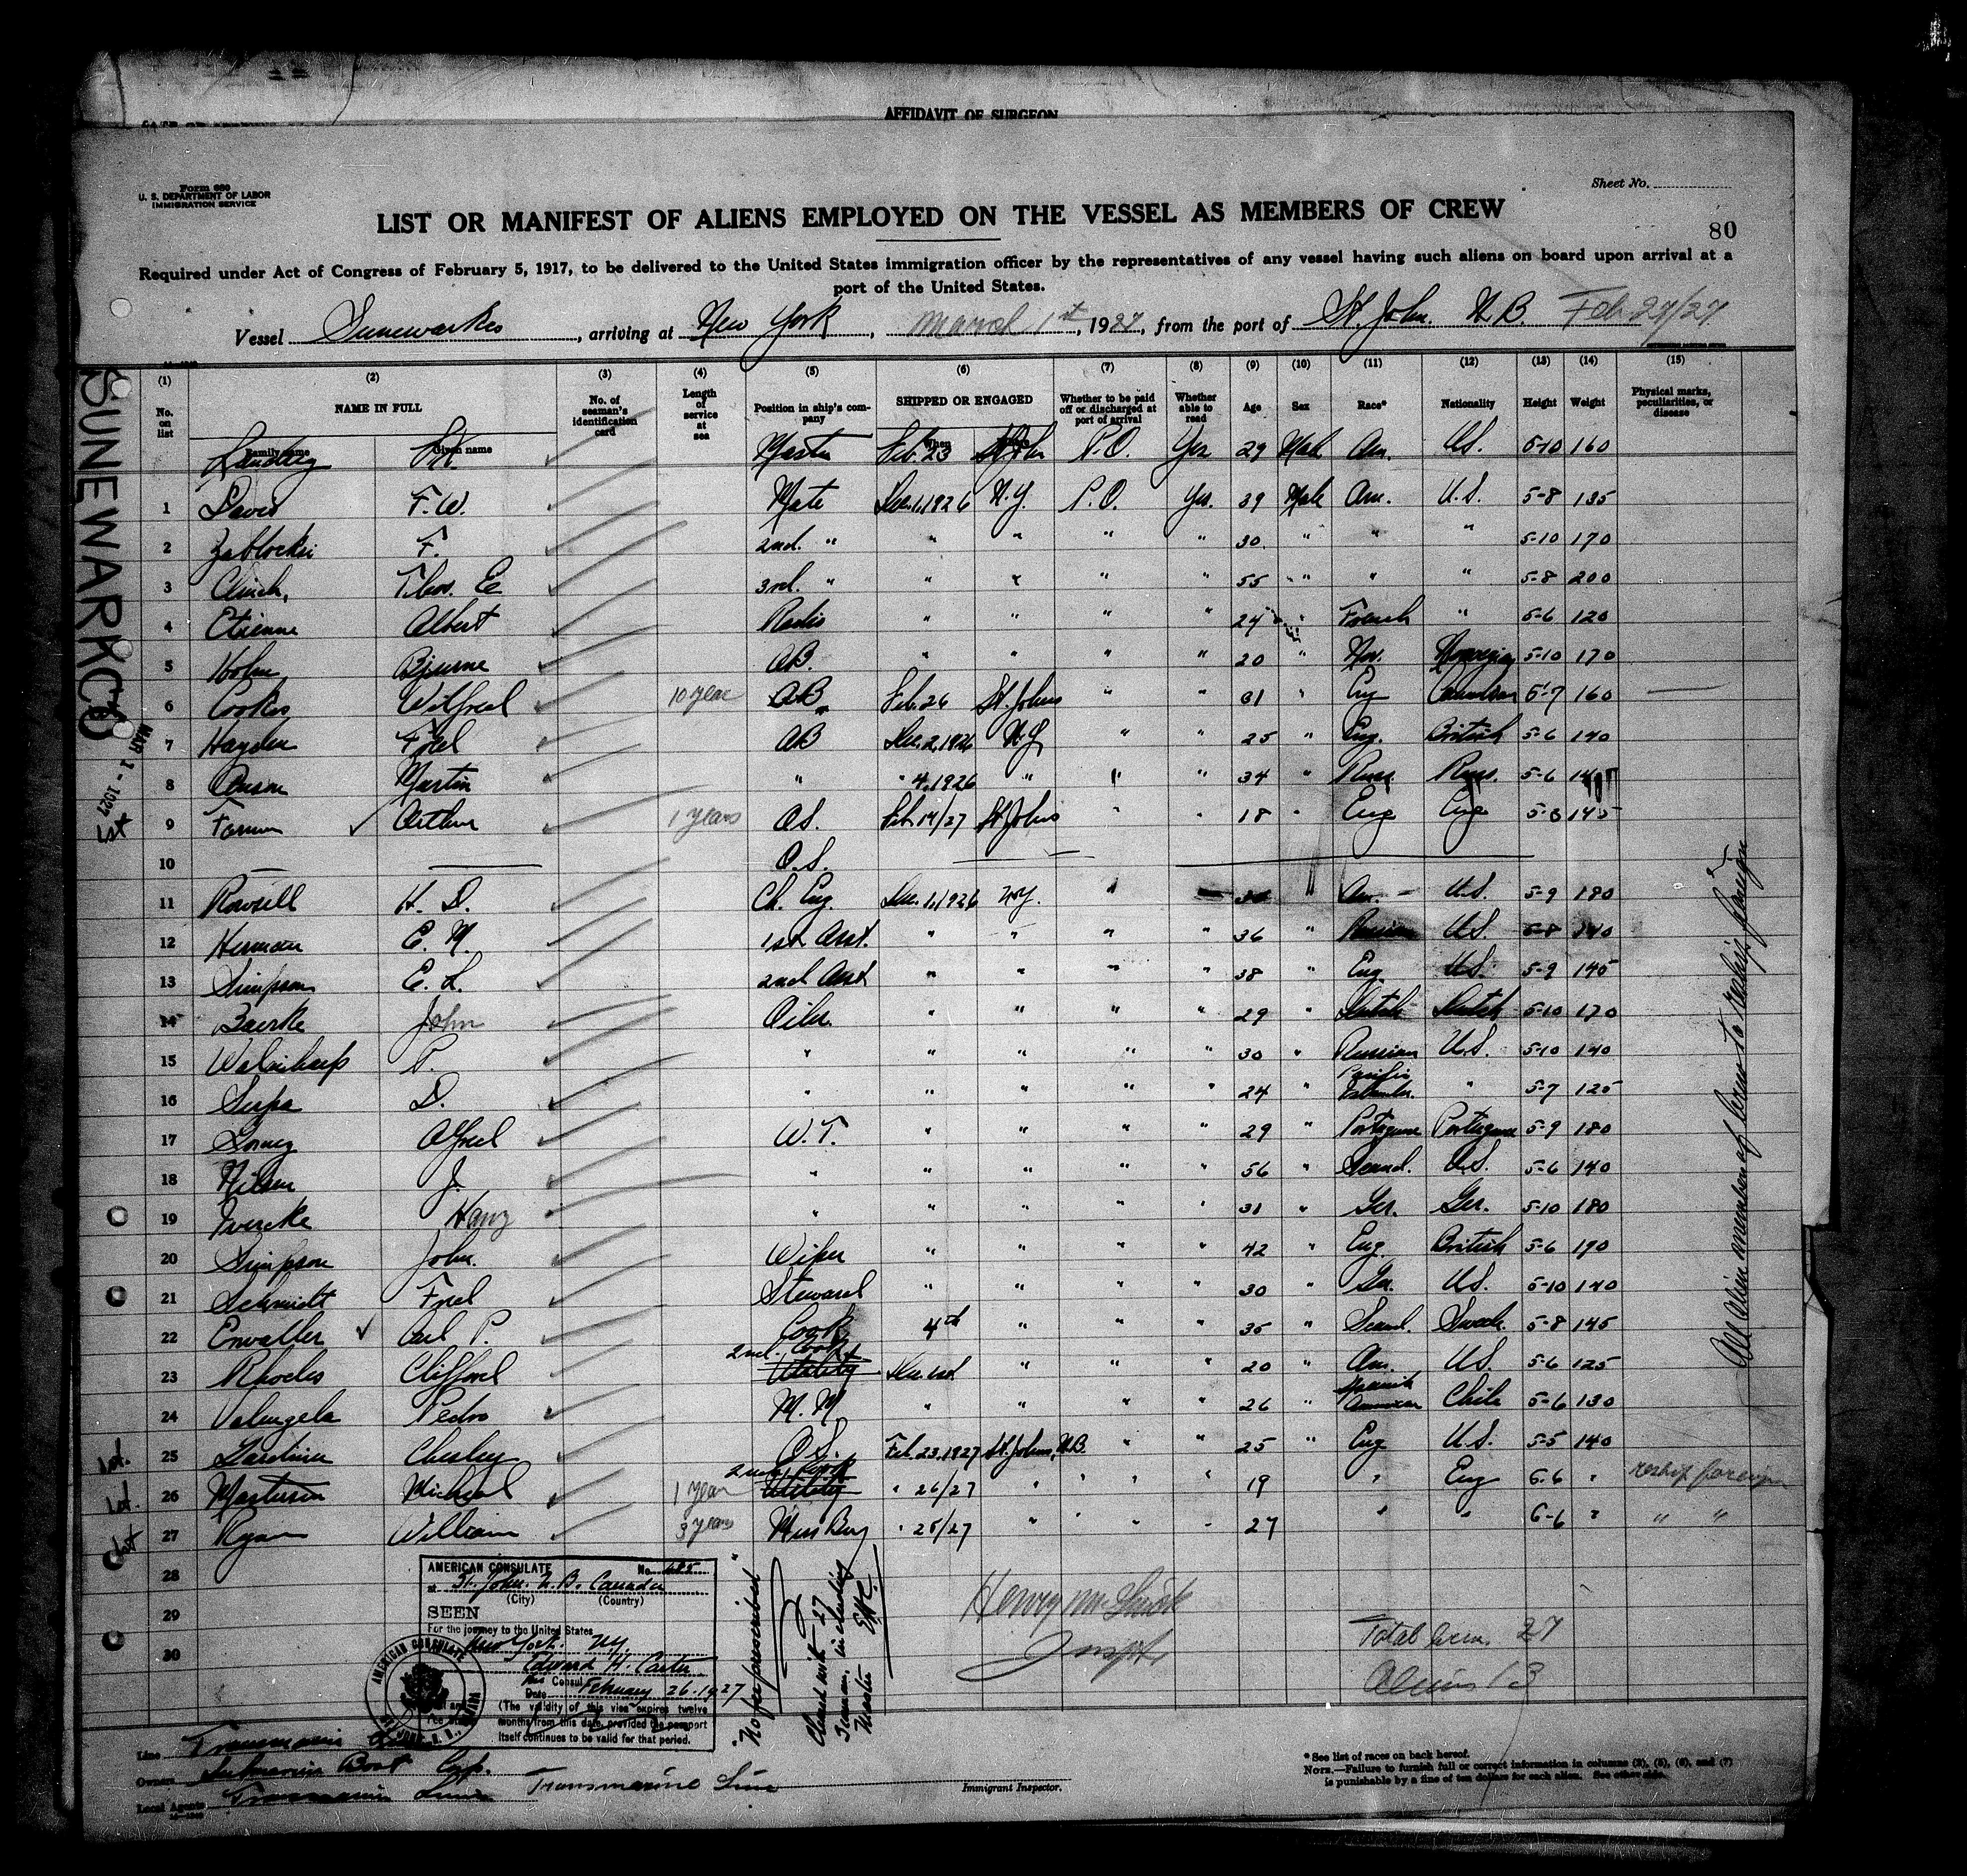 AFFIDAVIT OF SURGEON
Form 680
U. S. DEPARTMENT OF LABOR
IMMIGRATION SERVICE
Sheet No.
LIST OR MANIFEST OF ALIENS EMPLOYED ON THE VESSEL AS MEMBERS OF CREW
80
Required under Act of Congress of February 5, 1917, to be delivered to the United States immigration officer by the representatives of any vessel having such aliens on board upon arrival at a
port of the United States.
Vessel Sunewarkco, arriving at New York, March 1st, 1927, from the port of St. John. N.B. Feb 27/27
SUNEWARKCO
MAR 1 - 1927
(1) (2) (3) (4) (5) (6) (7) (8) (9) (10) (11) (12) (13) (14) (15)
No. on list NAME IN FULL No. of seaman's identification card Length of service at sea Position in ship's company SHIPPED OR ENGAGED Whether to be paid off or discharged at port of arrival Whether able to read Age Sex Race* Nationality Height Weight Physical marks, peculiarities, or disease
Family name Given name When
Master Feb. 23 St John P.O. Yes 29 Male Am. U.S. 5-10 160
1 Davis F.W. Mate Dec. 1, 1926 N.Y. P.O. Yes. 39 Male Am. U.S. 5-8 135
2 Zablocki F. 2nd. " " " " " 30 " " " 5-10 170
3 Thos. E 3rd. " " " " " 55 " " " 5-8 200
4 Etienne Albert Radio " " " " 24 " French " 5-6 120
5 Holm Bjarne AB. " " " " 20 " Nor. Norwegian 5-10 170
6 Cookes Wilfred 10 year AB Feb. 26 St. Johns " " " Eng Canadian 5-7 160
7 Hayden Fred AB Dec. 2, 1926 N.Y. " " 25 " Eng. British 5-6 140
8 Martin " " 4, 1926 " " " 34 " Russ. Russ. 5-6
9 Arthur 1 years O.S. Feb 14/27 St Johns " " 18 " Eng Eng 5-8 145
10 O.S.
11 H. D. Ch. Eng. Dec. 1, 1926 N.Y. " Am. U.S. 5-9 180
12 Herman E. M. 1st Asst. " " " " 36 " Russian U.S. 5-8 140
13 Simpson E. L. 2nd Asst " " " " 38 " Eng U.S. 5-9 145
14 Baerke John Oiler " " " " 29 " Dutch Dutch 5-10 170
15 P. " " " " " 30 " Russian U.S. 5-10 140
16 Serpa D. " " " " " 24 " Pacific Islander. " 5-7 125
17 Gomez Alfred W.T. " " " " 29 " Portuguese Portuguese 5-9 180
18 Nilsen J. " " " " " 56 " Scand. U.S. 5-6 140
19 Hans " " " " " 31 " Ger. Ger. 5-10 180
20 Simpson John. Wiper " " " " 42 " Eng. British 5-6 190
21 Schmidt Fred Steward " " " " 30 " Ger. U.S. 5-10 140
22 Carl P. Cook 4th " " " 35 " Scand. Swede. 5-8 145
23 Rhodes Clifford 2nd. Cook Utility Dec. 1st " " " 20 " Am. U.S. 5-6 125
24 Pedro M.M " " " " 26 " Spanish American Chile 5-6 130
1st. 25 Chesley O.S. Feb. 23, 1927 St. Johns, N.B. " " 25 " Eng U.S. 5-5 140
1st. 26 Masterson Micheal 1 year 2nd Cook Utility " 26/27 " " " 19 " Eng 6-6 " reship foreign
1st 27 Ryan William 3 years Mess Boy " 26/27 " " " 27 " " 6-6 " " "
28
29
30
All Alien members of crew to reship foreign
AMERICAN CONSULATE No.
at St. John. N.B. Canada
(City) (Country)
SEEN
For the journey to the United States
New York. N.Y.
Edward H. Carter
Consul
Date February 26. 1927
(The validity of this visa expires twelve
months from this date, provided the passport
itself continues to be valid for that period.
AMERICAN CONSULATE
"No fee prescribed"
27
Seamen, including
Master
Total Crew 27
Aliens 13
Line Transmarine
Owners Submarine Boat Corp.
Local Agents Transmarine Lines Transmarine Line
Immigrant Inspector.
*See list of races on back hereof.
NOTE.—Failure to furnish full or correct information in columns (2), (5), (6), and (7)
is punishable by a fine of ten dollars for each alien. See other side.